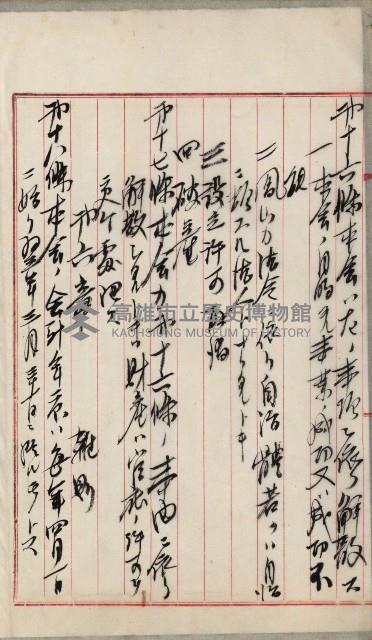 第十六條 本會ハ左ノ事項ニ依リ解散ス
一 本會ノ目的タル事業ノ成功又ハ成功不
能
二 鳳山カ法令ニ依リ自治體若クハ自治
ニ類スル法
三 設立許可ノ取消
四 破産
第十七條 本會カ第十六條ノ事由ニ依リ
解散シタルトキハ財産ハ官廳ノ許可ヲ
受ケ處
第六章 雜則
第十八條 本會ノ會計年度ハ每年四月一日
ニ始リ翌年三月三十一日ニ終ルモノトス
高雄市立歷史博物館
KAOHSIUNG MUSEUM OF HISTORY